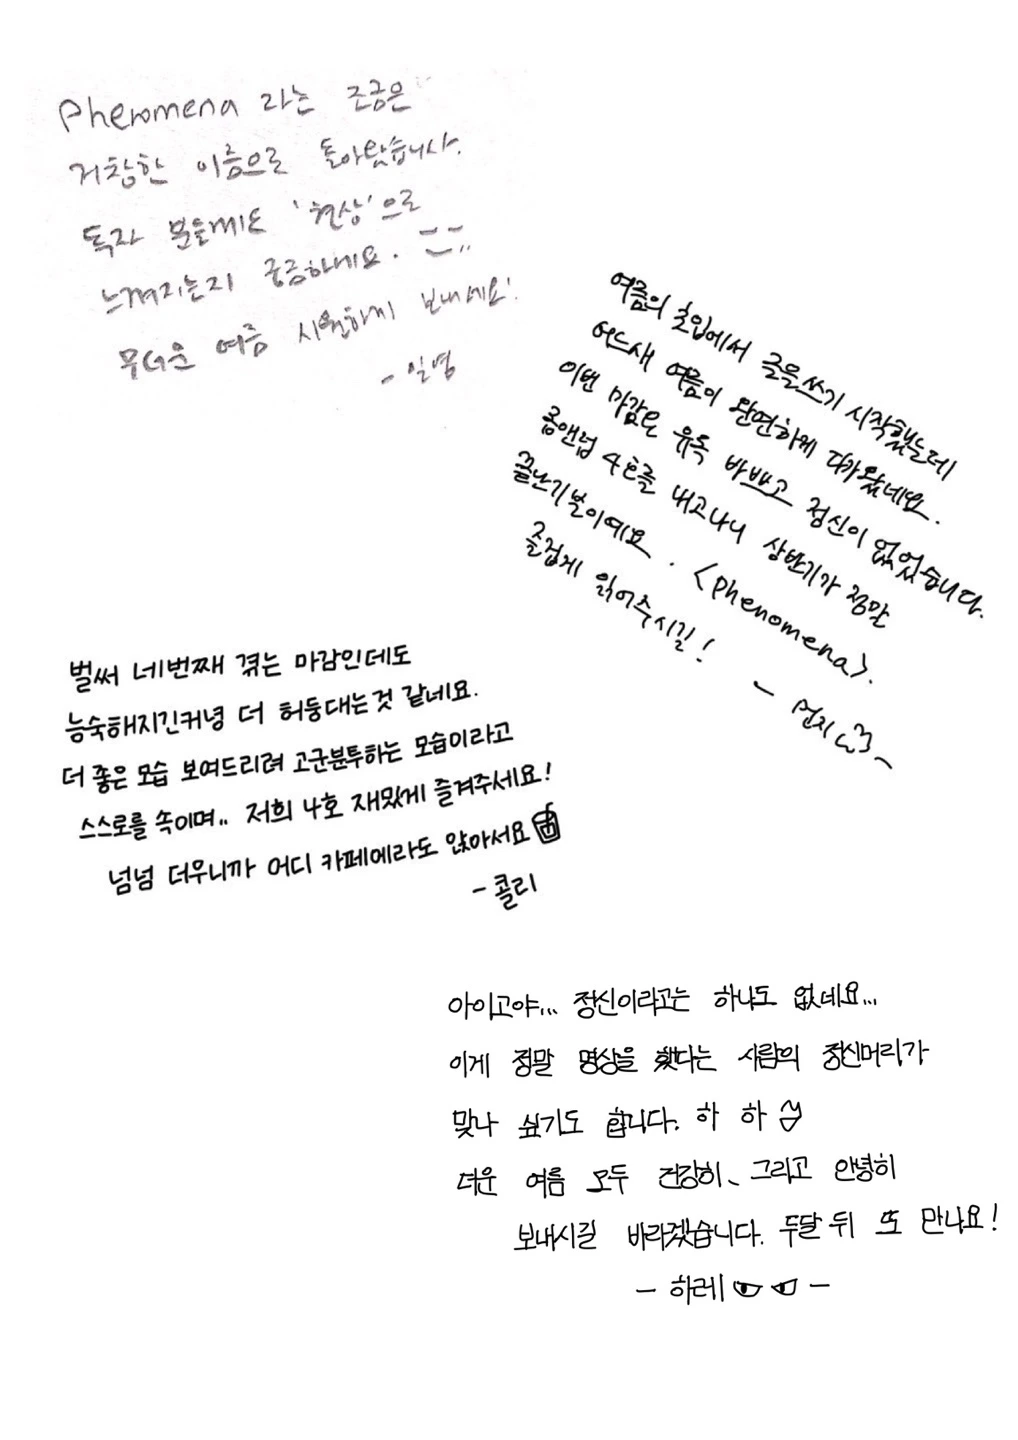 Phenomena 라는 조금은
거창한 이름으로 돌아왔습니다.
독자 분들께도 '현상'으로
느껴지는지 궁금하네요.
무더운 여름 시원하게 보내세요!
- 일영
여름의 초입에서 글을 쓰기 시작했는데
어느새 여름이 완연하게 다가왔네요.
이번 마감은 유독 바쁘고 정신이 없었습니다.
콤앤럽 4호를 내고나니 상반기가 정말
끝난기분이예요. <phenomena>.
즐겁게 읽어주시길!
벌써 네번째 겪는 마감인데도
능숙해지긴커녕 더 허둥대는것 같네요.
더 좋은 모습 보여드리려 고군분투하는 모습이라고
스스로를 속이며.. 저희 4호 재밌게 즐겨주세요!
넘넘 더우니까 어디 카페에라도 앉아서요
- 콜리
아이고야... 정신이라고는 하나도 없네요...
이게 정말 명상을 했다는 사람의 정신머리가
맞나 싶기도 합니다. 하 하
더운 여름 모두 건강히, 그리고 안녕히
보내시길 바라겠습니다. 두달 뒤 또 만나요!
- 하레 -